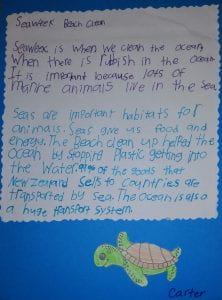 Seaweek Beach Clean
Seaweek is when we clean the ocean
When there is rubbish in the ocean
It is important because lots of
marine animals live in the sea.
Seas are important habitats for
animals. Seas give us food and
energy. The Beach clean up helped the
ocean by stopping plastic getting into
the water. of the goods that
New Zealand sells to countries are
transported by sea. The Ocean is also
a huge transport system.
Carter